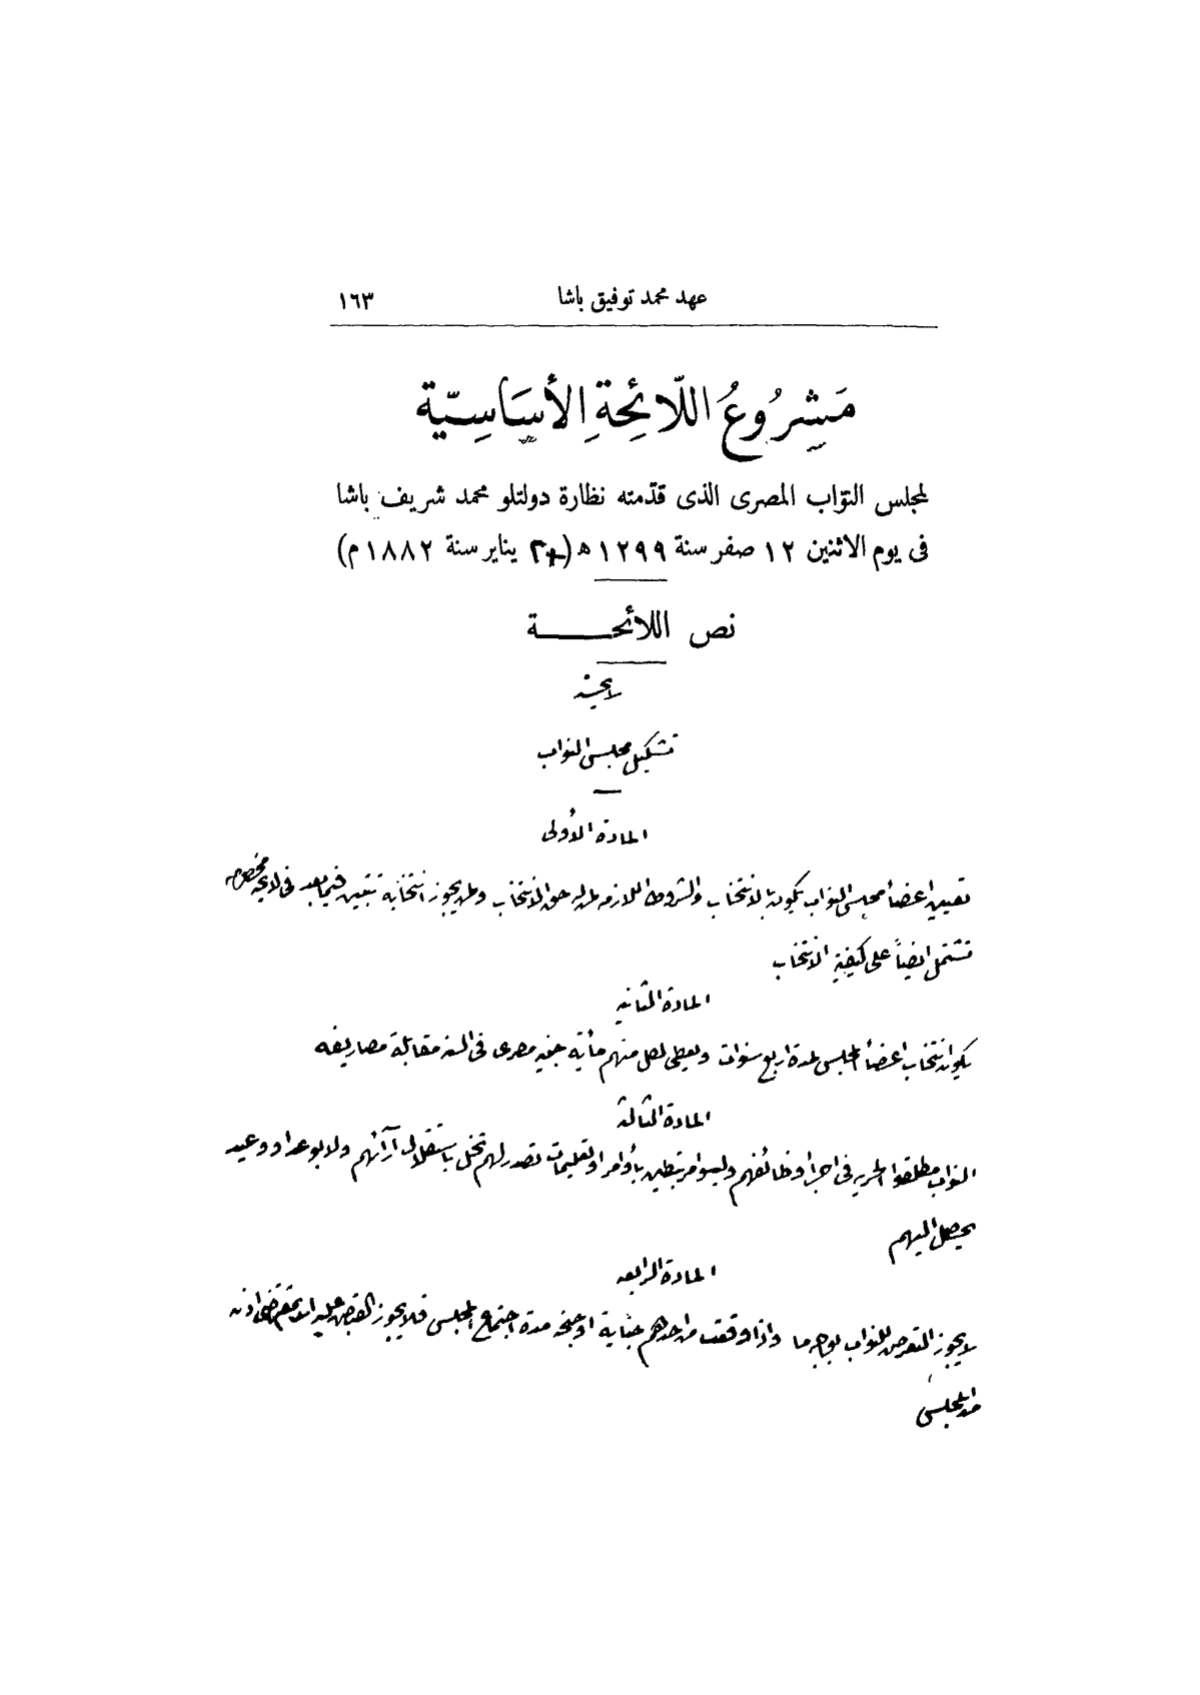 عهد محمد توفيق باشا ١٦٣
مَشرُوعُ اللّائِحَةِ الأسَاسِيّة
لمجلس النوّاب المصرى الذى قدّمته نظارة دولتلو محمد شريف باشا
فى يوم الاثنين ١٢ صفر سنة ١٢٩٩ ه ( يناير سنة ١٨٨٢ م)
نص اللائحة
لايحة
تشكيل مجلس النواب
المادة الأولى
تعيين اعضأ مجلس النواب يكون بالانتخاب والشروط اللازمه لمن له حق الانتخاب ولمن يجوز انتخابه تتبين فيما بعد فى لايحه مخصوصه
تشتمل ايضاً على كيفية الانتخاب
المادة الثانيه
يكون انتخاب اعضأ المجلس لمدة اربع سنوات ويعطى لكل منهم مأية جنيه مصرى فى السنه مقابلة مصاريفه
المادة الثالثة
النواب مطلقوا الحريه فى اجرأ وظائفهم وليسوا مرتبطين بأوامر او تعليمات تصدر لهم تخل باستقلال آرائهم ولا بوعد او وعيد
يحصل اليهم
المادة الرابعه
لا يجوز التعرض للنواب بوجه ما واذا وقعت من احدهم جناية او جنحه مدة اجتماع المجلس فلا يجوز القبض عليه الا بمقتضى اذن
من المجلس